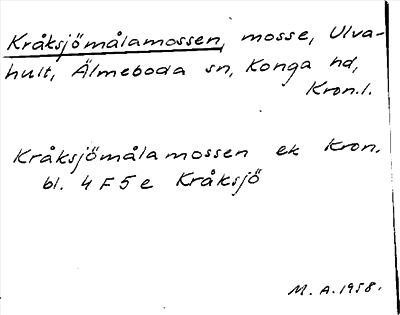 Kråksjömålamossen, mosse, Ulva-
hult, Älmeboda sn, Konga hd,
Kron.l.
Kråksjömålamossen ek Kron.
bl. 4 F 5 e Kråksjö
M. A. 1958.